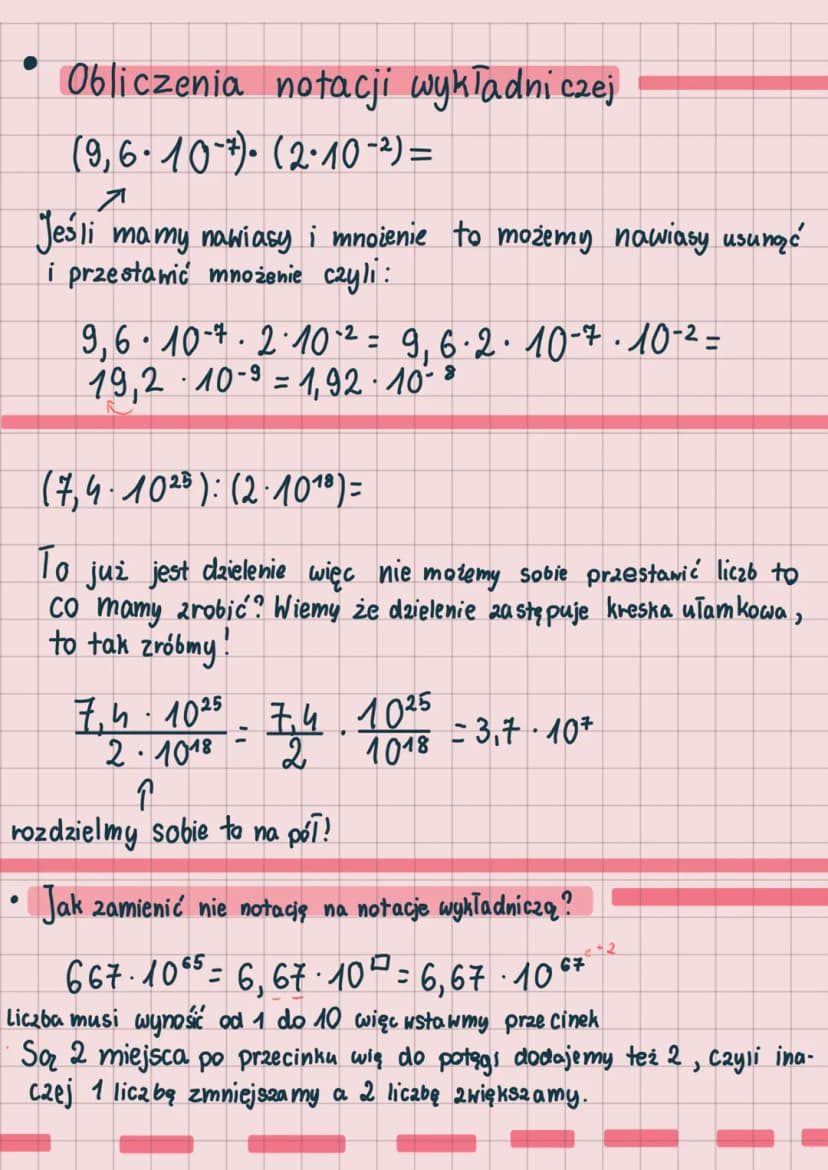 • Obliczenia notacji wykładniczej
(9,6 · 10⁻⁷) · (2 · 10⁻²) =
↗
Jeśli mamy nawiasy i mnożenie to możemy nawiasy usunąć
i przestawić mnożenie czyli:
9,6 · 10⁻⁷ · 2 · 10⁻² = 9,6 · 2 · 10⁻⁷ · 10⁻² =
19,2 · 10⁻⁹ = 1,92 · 10⁻⁸
(7,4 · 10²⁵) : (2 · 10¹⁸) =
To już jest dzielenie więc nie możemy sobie przestawić liczb to
co mamy zrobić? Wiemy że dzielenie zastępuje kreska ułamkowa,
to tak zróbmy!
7,4 · 10²⁵ / 2 · 10¹⁸ = 7,4 / 2 · 10²⁵ / 10¹⁸ = 3,7 · 10⁷
↑
rozdzielmy sobie to na pół!
• Jak zamienić nie notację na notacje wykładniczą?
667 · 10⁶⁵ = 6,67 · 10^□ = 6,67 · 10⁶⁷ ← +2
Liczba musi wynosić od 1 do 10 więc wstawmy przecinek
Są 2 miejsca po przecinku wię do potęgi dodajemy też 2, czyli ina-
czej 1 liczbę zmniejszamy a 2 liczbę zwiększamy.